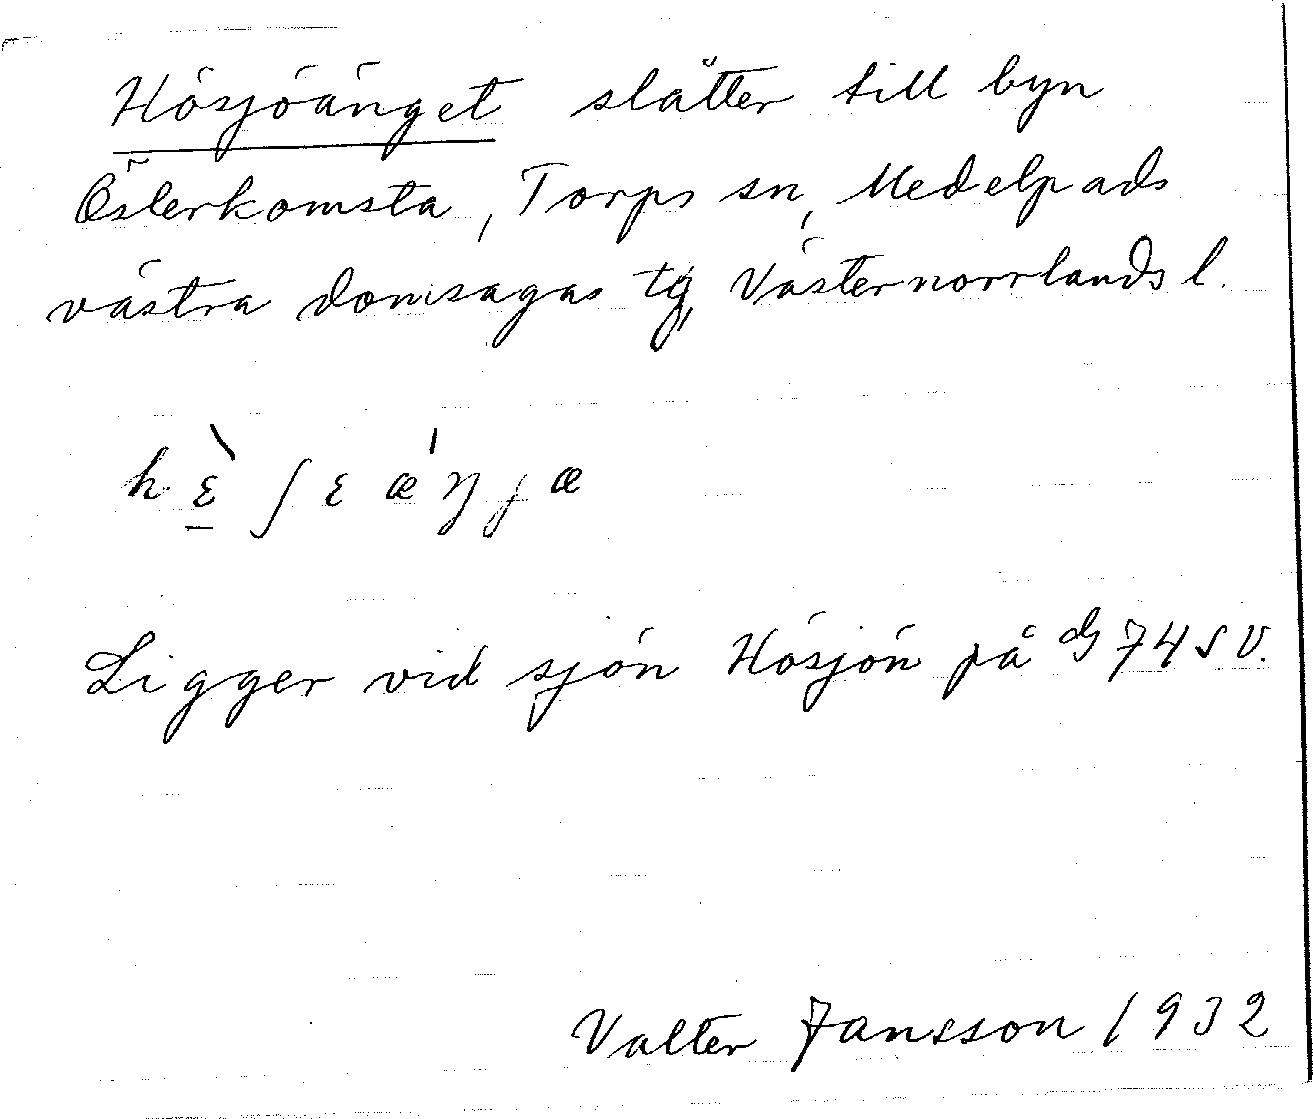 Hösjöänget slåtter till byn
Österkomsta, Torps sn, Medelpads
västra domsagas tg, Västernorrlands l.
hɛ̠̀ʃɛæ'ŋjæ
Ligger vid sjön Hösjön på 74 SV.
Valter Jansson 1932